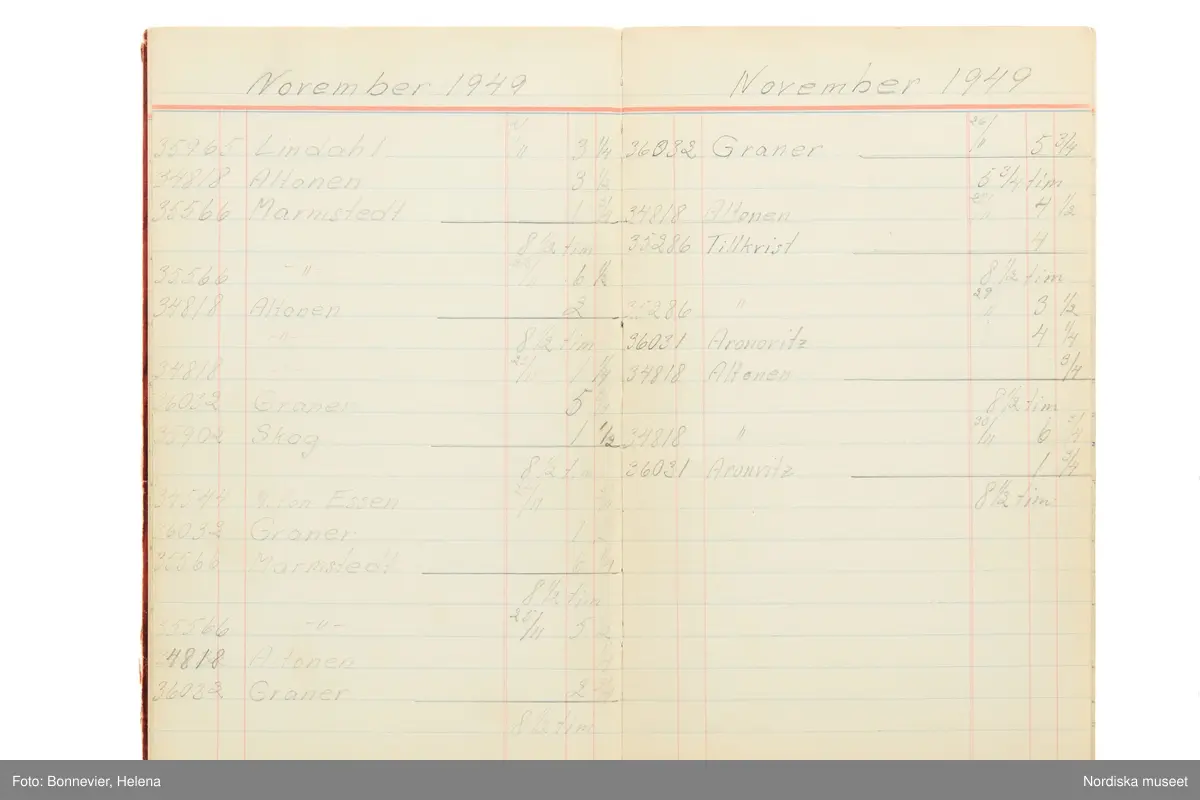 November 1949
35965 Lindahl " 3 1/4
34818 Altonen 3 1/2
35566 Marmstedt 1 3/4
8 1/2 tim
35566 -"- 6 1/2
34818 Altonen 2
8 1/2 tim
34818 -"- 1 1/4
36032 Graner 5
35902 Skog 1 1/2
8 1/2 tim
v. von Essen
36032 Graner 1
35566 Marmstedt
8 1/2 tim
35566 -"- 25/11 5
34818 Altonen
36032 Graner 2 3/4
8 1/2 tim
November 1949
36032 Graner 26/11 5 3/4
5 3/4 tim
34818 Altonen 4 1/2
35286 Tillkvist 4
8 1/2 tim
35286 " 29 3 1/2
36031 Aronovitz 4 1/4
34818 Altonen 3/4
8 1/2 tim
34818 " 30/11 6 3/4
36031 Aronvitz 1 3/4
8 1/2 tim
Foto: Bonnevier, Helena
Nordiska museet